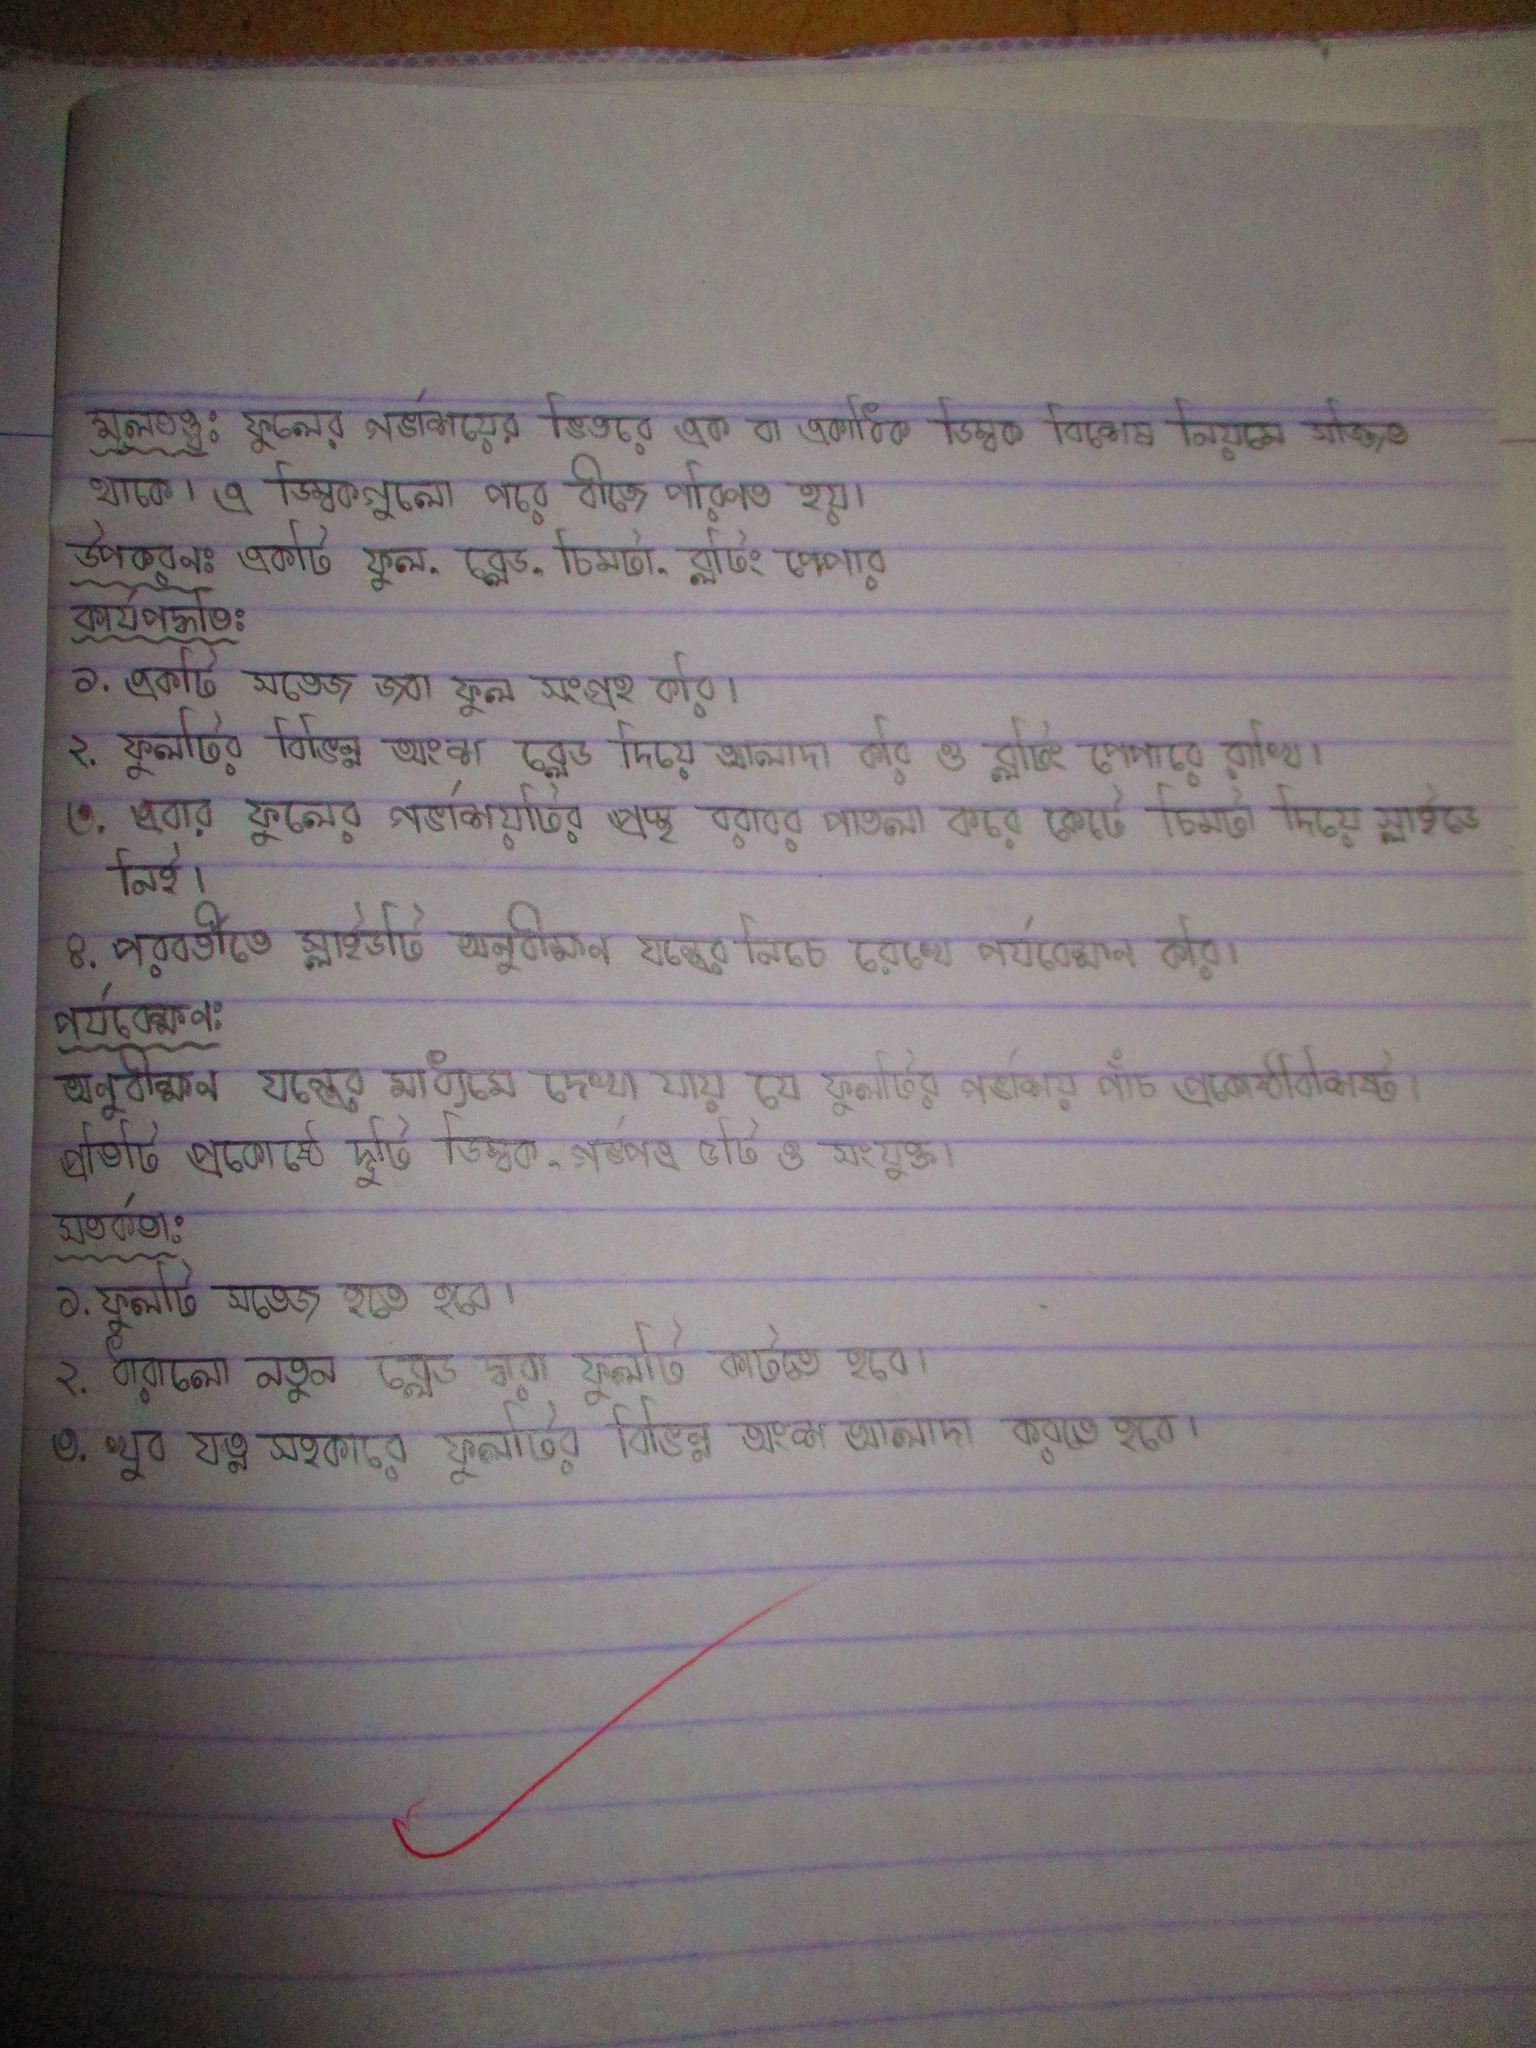 মূলতত্ত্ব: ফুলের গর্ভাশয়ের ভিতরে এক বা একাধিক ডিম্বক বিশেষ নিয়মে সজ্জিত
থাকে। এ ডিম্বকগুলো পরে বীজে পরিণত হয়।
উপকরন: একটি ফুল, ব্লেড, চিমটা, ব্লটিং পেপার
কার্যপদ্ধতি:
১. একটি সতেজ জবা ফুল সংগ্রহ করি।
২. ফুলটির বিভিন্ন অংশ ব্লেড দিয়ে আলাদা করি ও ব্লটিং পেপারে রাখি।
৩. এবার ফুলের গর্ভাশয়টির প্রস্থ বরাবর পাতলা করে কেটে চিমটা দিয়ে স্লাইডে
নিই।
৪. পরবর্তীতে স্লাইডটি অনুবীক্ষন যন্ত্রের নিচে রেখে পর্যবেক্ষন করি।
পর্যবেক্ষণ:
অনুবীক্ষন যন্ত্রের মাধ্যমে দেখা যায় যে ফুলটির গর্ভাশয় পাঁচ প্রকোষ্ঠবিশিষ্ট।
প্রতিটি প্রকোষ্ঠে দুটি ডিম্বক, গর্ভপত্র ৫টি ও সংযুক্ত।
সতর্কতা:
১. ফুলটি সতেজ হতে হবে।
২. ধারালো নতুন ব্লেড দ্বারা ফুলটি কাটতে হবে।
৩. খুব যত্ন সহকারে ফুলটির বিভিন্ন অংশ আলাদা করতে হবে।